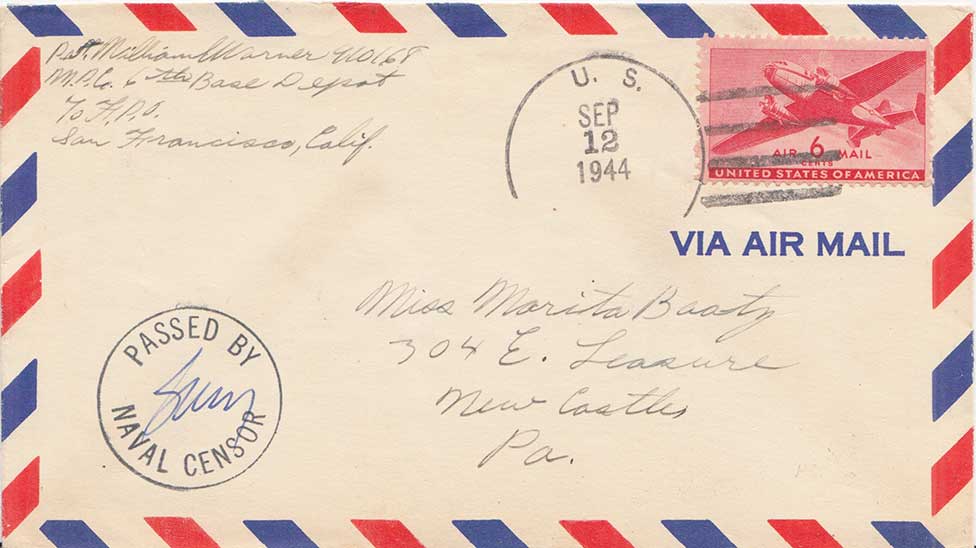 Pvt. William Warner 910168
M.P.Co. 6th Base Depot
℅ F.P.O.
San Francisco, Calif.
U. S.
SEP
12
1944
AIR 6 MAIL
CENTS
UNITED STATES OF AMERICA
VIA AIR MAIL
Miss Marita Baaty
304 E. Leasure
New Castle
Pa.
PASSED BY
NAVAL CENSOR